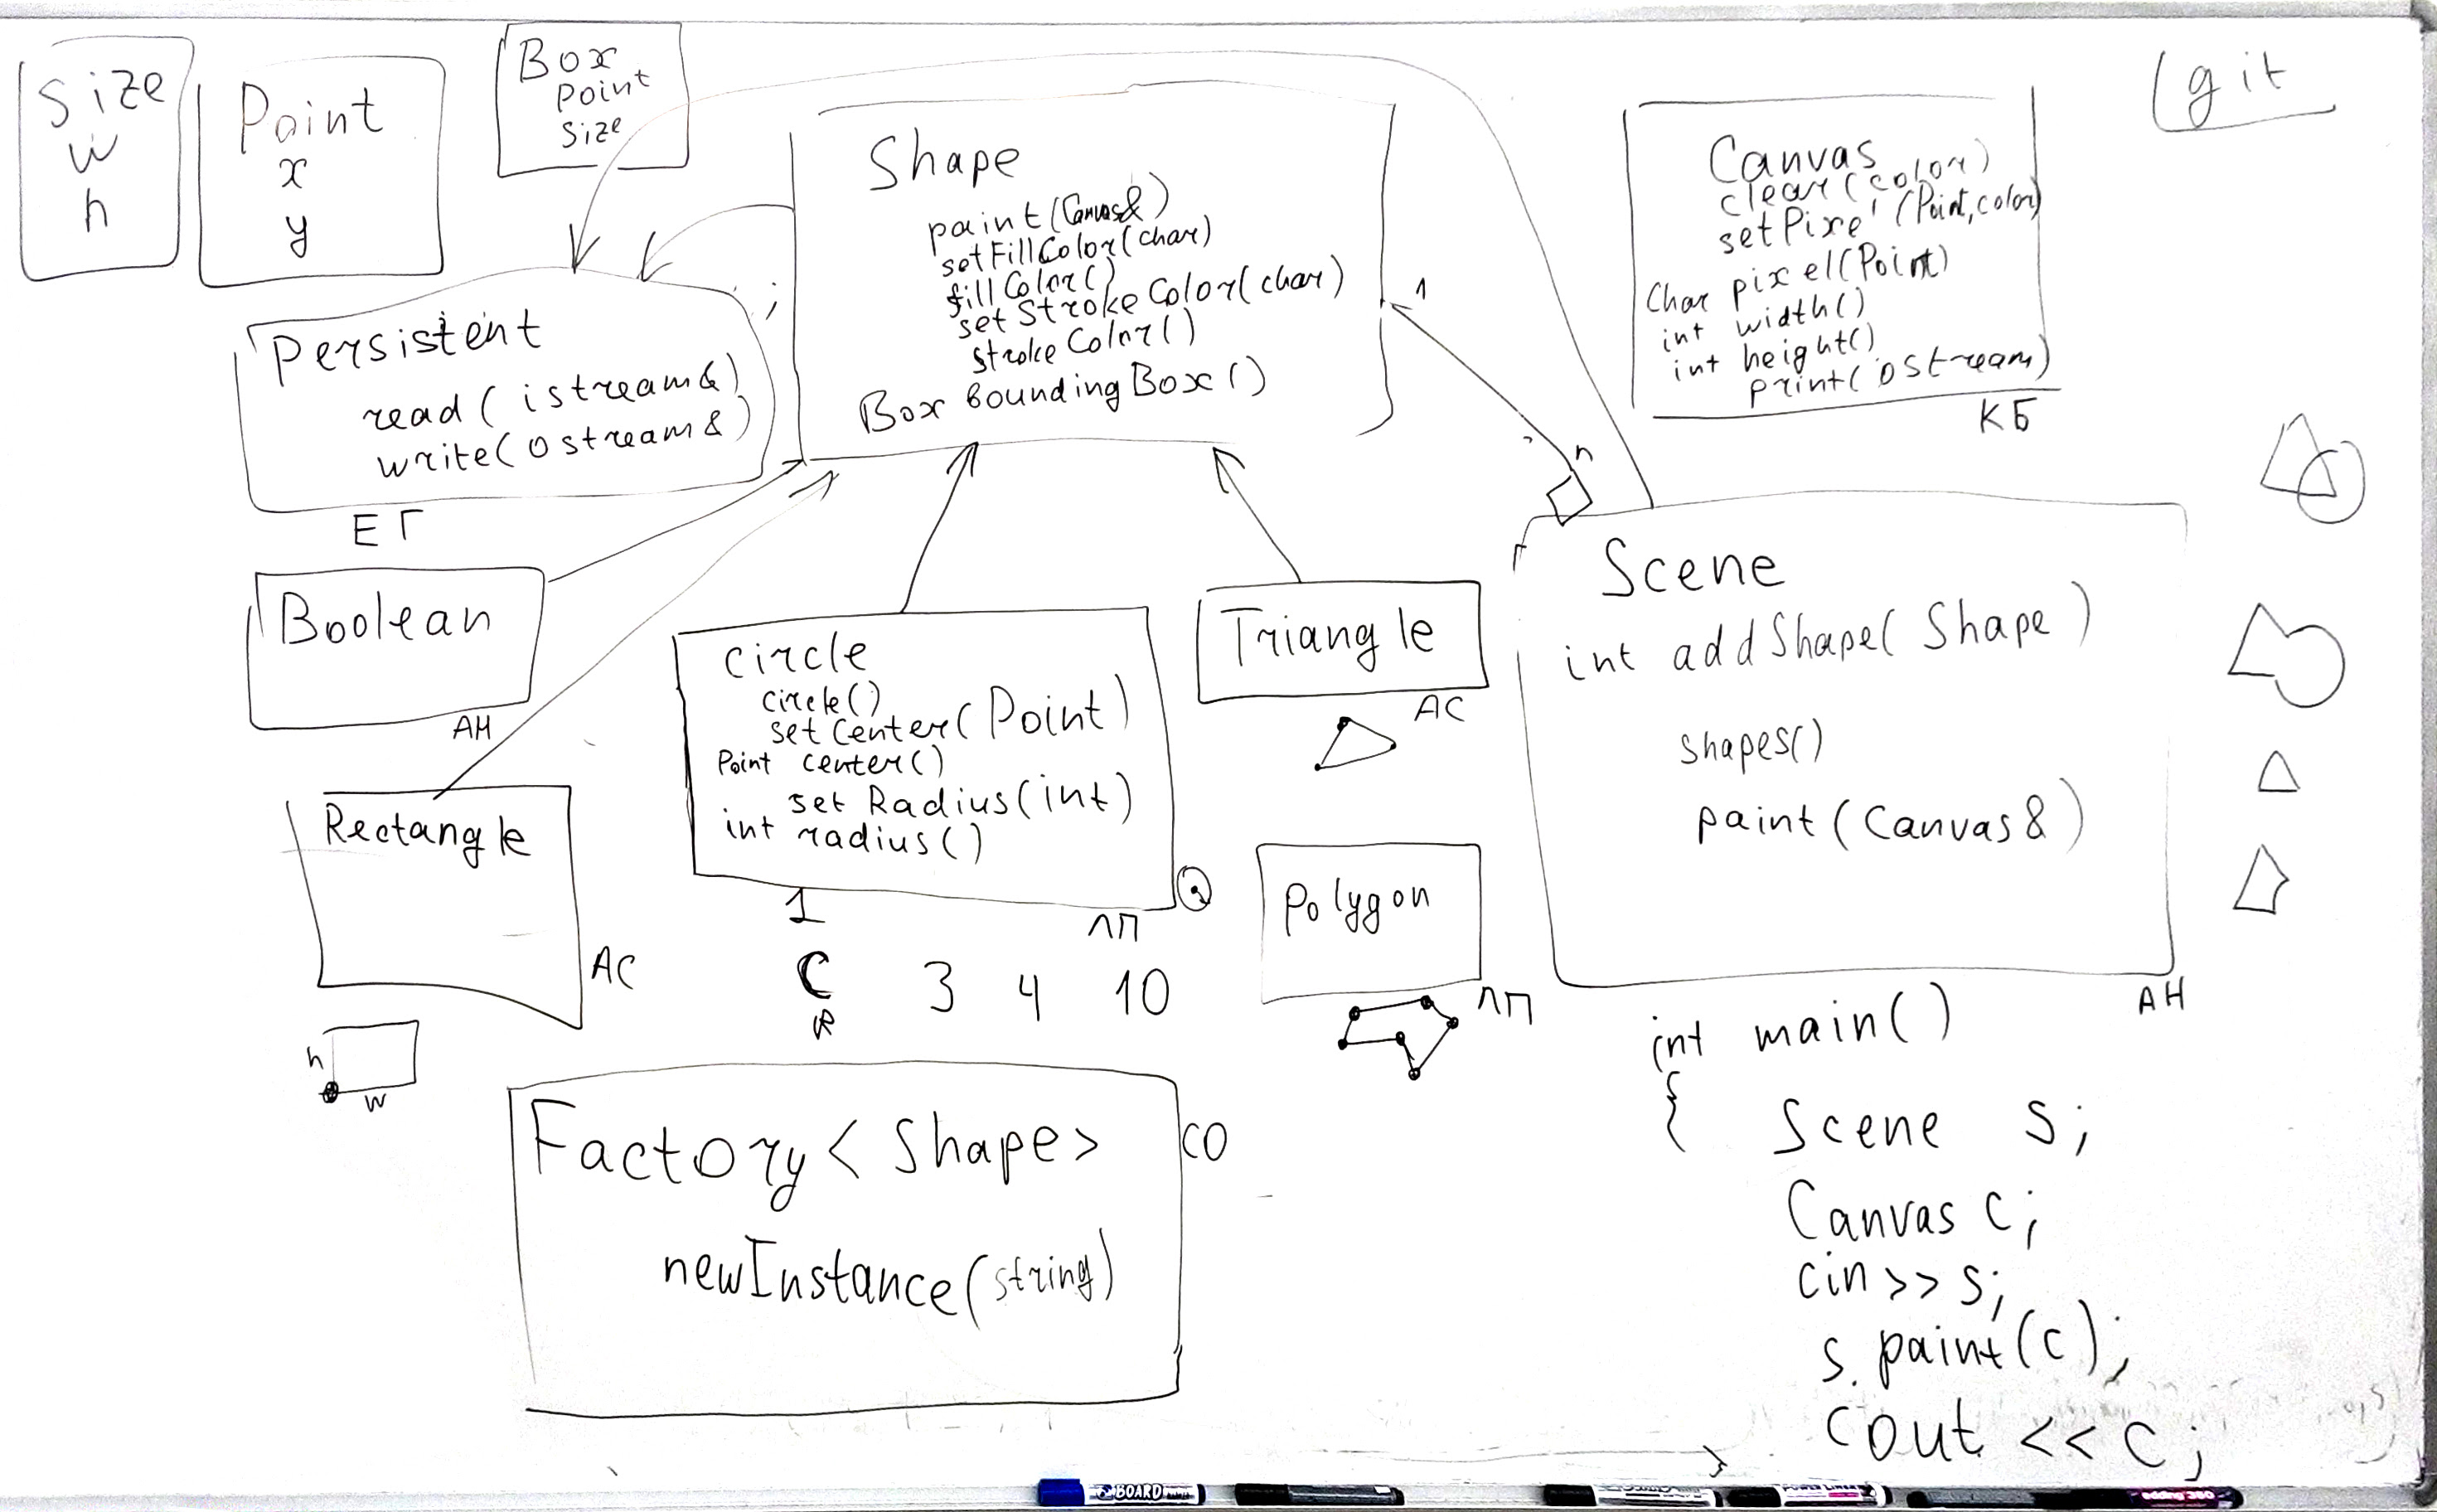 Size
w
h
Point
x
y
Box
Point
Size
Shape
paint(Canvas&)
setFillColor(char)
fillColor()
setStrokeColor(char)
strokeColor()
Box boundingBox()
1
n
Canvas
clear(color)
setPixel(Point, color)
char pixel(Point)
int width()
int height()
print(ostream)
КБ
git
Persistent
read(istream&)
write(ostream&)
ЕГ
Boolean
АН
Rectangle
АС
h
w
circle
circle()
setCenter(Point)
Point center()
set Radius(int)
int radius()
ЛП
1
C
R
3 4 10
Triangle
АС
Polygon
ЛП
Scene
int addShape(Shape)
shapes()
paint(Canvas&)
АН
Factory<Shape>
newInstance(string)
CO
int main()
{ Scene s;
Canvas c;
cin>>s;
s.paint(c);
cout << c;
BOARD